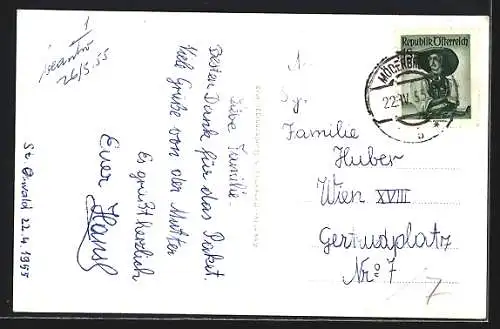 1
beantw
26/5.55
St. Oswald 22.4.1955
Liebe Familie-
Besten Dank für das Paket.
Viele Grüße von der Mutter
Es grüßt herzlich
Euer Hansl
Republik Österreich
22.IV.55
b
*
N.
Sg.
Familie
Huber
Wien XVIII
Gertrudplatz
Nro 7
7